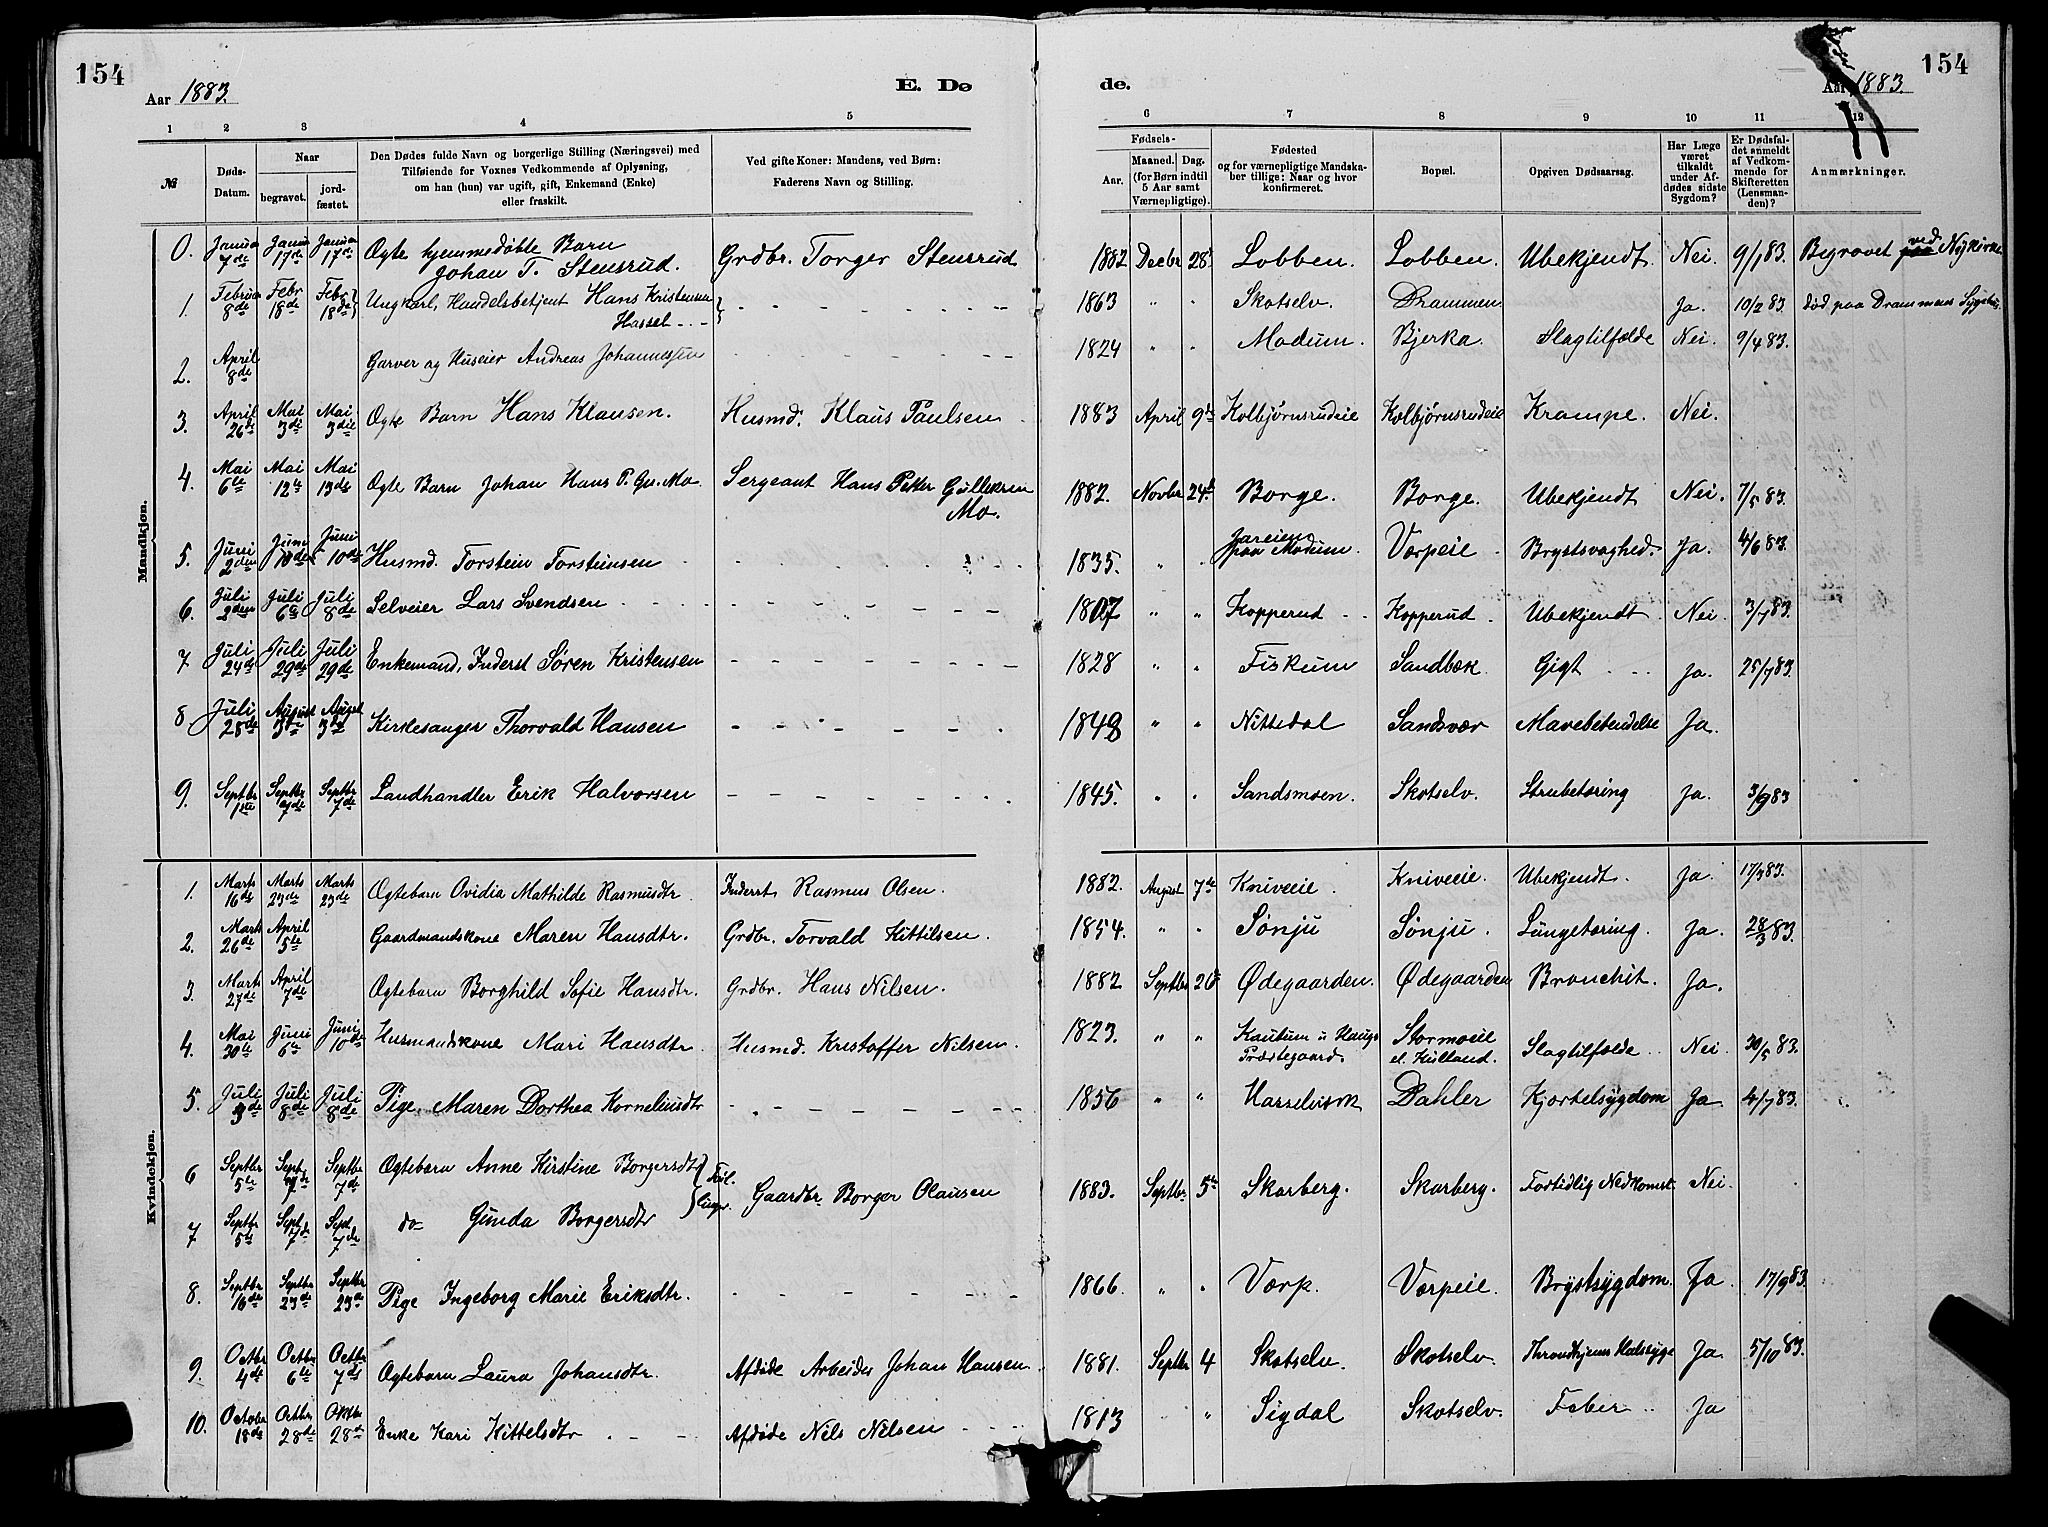 154
Aar 1883.
E. Dø
de.
Aar 1883.
154
1 2 3 4 5
6 7 8 9 10 11 12
№
Døds-Datum.
Naar
begravet.
jord-fæstet.
Den Dødes fulde Navn og borgerlige Stilling (Næringsvei) med
Tilføiende for Voxnes Vedkommende af Oplysning,
om han (hun) var ugift, gift, Enkemand (Enke)
eller fraskilt.
Ved gifte Koner: Mandens, ved Børn:
Faderens Navn og Stilling.
Fødsels-
Aar.
Maaned. Dag.
(for Børn indtil
5 Aar samt
Værnepligtige).
Fødested
og for værnepligtige Mandska-
ber tillige: Naar og hvor
konfirmeret.
Bopæl.
Opgiven Dødsaarsag.
Har Læge
været
tilkaldt
under Af-
dødes sidste
Sygdom?
Er Dødsfal-
det anmeldt
af Vedkom-
mende for
Skifteretten
(Lensman-
den)?
Anmærkninger.
Mandkjøn.
0. Januar 7de Januar 17de Januar 17de Ægte hjemmedøbte Barn Johan T. Stensrud. Grdbr. Torger Stensrud 1882 Decbr 28 Lobben. Lobben. Ubekjendt. Nei. 9/1 83. Begravet paa ved Nykirke
1. Februar 8de Febr 18de Febr 18de Ungkarl, Handelsbetjent Hans Kristensen Hassel 1863 " " Skotselv. Drammen Ja. 10/2 83. død paa Drammens Sygehus.
2. April 8de Garver og Huseier Andreas Johannessen 1824 " " Modum. Bjerka. Slagtilfælde Nei. 9/4 83.
3. April 26de Mai 3die Mai 3die Ægte Barn Hans Klausen. Husmd. Klaus Paulsen 1883 April 9de Kolbjørnsrudeie Kolbjørnsrudeie Krampe. Nei.
4. Mai 6te Mai 12te Mai 13de Ægte Barn Johan Hans P. Gu. Mo. Sergeant Hans Peter Gulleksen Mo. 1882. Novbr 24de Borge. Borge. Ubekjendt Nei. 7/5 83.
5. Juni 2den Juni 10de Juni 10de Husmd. Torstein Torsteinsen 1835. " " paa Modum. Værpeie. Brystsvaghed. Ja. 4/6 83.
6. Juli 2den Juli 6te Juli 8de Selveier Lars Svendsen 1807 " " Kopperud Kopperud. Ubekjendt Nei. 3/7 83.
7 Juli 24de Juli 29de Juli 29de Enkemand, Inderst Søren Kristensen 1828 " " Fiskum Sandbæk. Gigt Ja. 25/7 83.
8 Juli 28de August 3die August 3die Kirkesanger Thorvald Hansen 1848 " " Nittedal Sandsvær Mavebetendelse Ja.
9. Septbr 1ste Septbr 7de Septbr 7de Landhandler Erik Halvorsen 1845. " " Sandsmoen. Skotselv. Strubetæring Ja. 3/9 83
Kvindekjøn.
1. Marts 16de Marts 23de Marts 23de Ægtebarn Ovidia Mathilde Rasmusdtr. Inderst Rasmus Olsen. 1882. August 7de Kniveeie. Kniveeie. Ubekjendt. Ja. 17/3 83.
2. Marts 26de April 5te Gaardmandskone Maren Hansdtr. Grdbr. Torvald Kittilsen. 1854. " " Sønju Sønju. Lungetæring. Ja. 28/3 83.
3. Marts 27de April 7de Ægtebarn Borghild Sofie Hansdtr. Grdbr. Hans Nilsen. 1882 Septbr 26 Ødegaarden. Ødegaarden Bronchit. Ja.
4. Mai 30te Juni 6te Juni 10de Husmandskone Mari Hansdtr. Husmd. Kristoffer Nilsen. 1823. " " Præstegaard Stormoeie Slagtilfælde Nei. 30/5 83.
5. Juli 3de Juli 8de Juli 8de Pige. Maren Dorthea Korneliusdtr 1856 " " Hasselværk Dahler Kjertelsygdom Ja. 4/7 83.
6 Septbr 5te Sept. 7de Septbr 7de Ægtebarn Anne Kirstine Borgersdtr Tvil-
7 Septbr 5te Sept 7de Sept 7de do Gunda Borgersdtr linger. Gaardbr. Borger Olausen 1883. Septbr. 5te Skarberg. Skarberg. Fortidlig Nedkomst. Nei.
8. Septbr 16de Septbr 23de Septbr 23de Pige Ingeborg Marie Eriksdtr. 1866. " " Værp. Værpeie. Brystsygdom. Ja. 17/9 83.
9. Octbr 4de Octbr 6te Octbr 7de Ægtebarn Laura Johansdtr. Afdøde Arbeider Johan Hansen 1881. Septbr 4 Skotselv. Skotselv. Throndhjems Halssyge Ja. 5/10 83.
10. October 18de Octbr 28de Oktbr 28de Enke Kari Kittelsdtr Afdøde Nils Nilsen 1813 " Sigdal Skotselv. Feber Ja